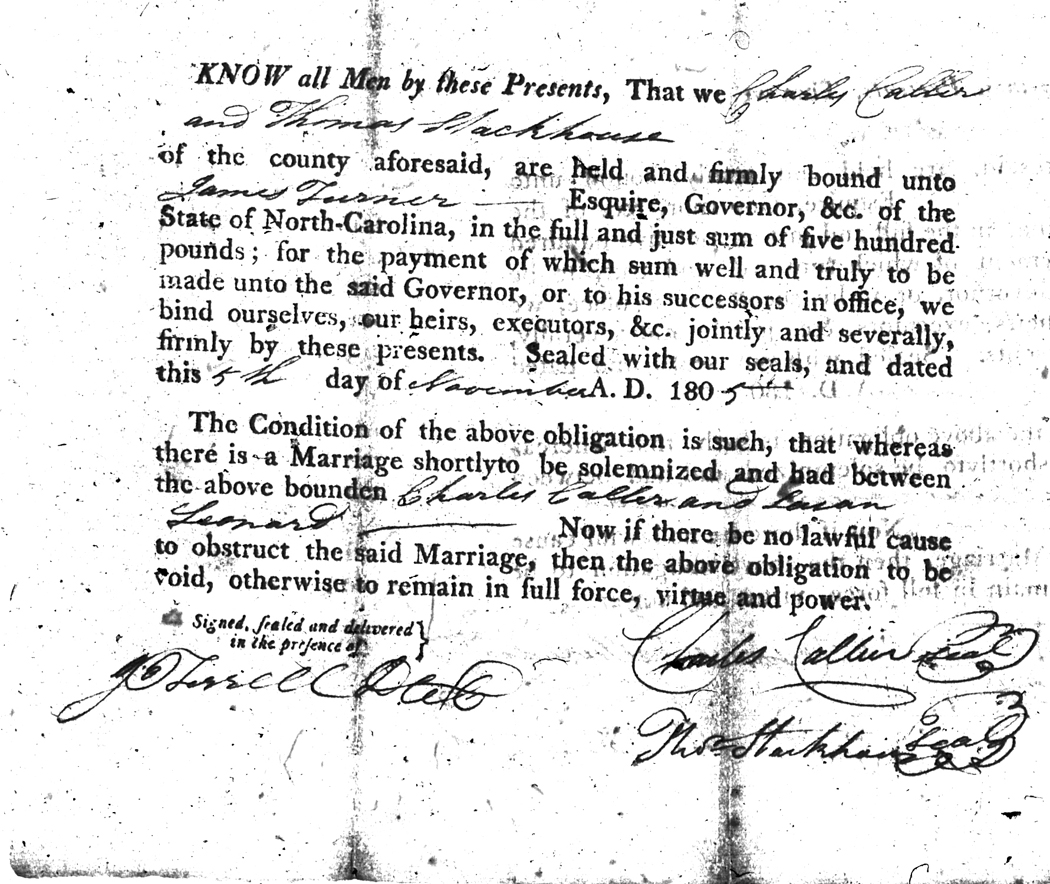 KNOW all Men by these Presents, That we Charles Callier
and Thomas Stackhouse
of the county aforesaid, are held and firmly bound unto
James Turner — Esquire, Governor, &c. of the
State of North-Carolina, in the full and just sum of five hundred
pounds; for the payment of which sum well and truly to be
made unto the said Governor, or to his successors in office, we
bind ourselves, our heirs, executors, &c. jointly and severally,
firmly by these presents. Sealed with our seals, and dated
this 5th day of November A. D. 1805
The Condition of the above obligation is such, that whereas
there is a Marriage shortlyto be solemnized and had between
the above bounden Charles Callier and Susan
Leonard — Now if there be no lawful cause
to obstruct the said Marriage, then the above obligation to be
void, otherwise to remain in full force, virtue and power.
Signed, sealed and delivered }
in the presence of
Charles Callier Seal
Thos Stackhouse Seal